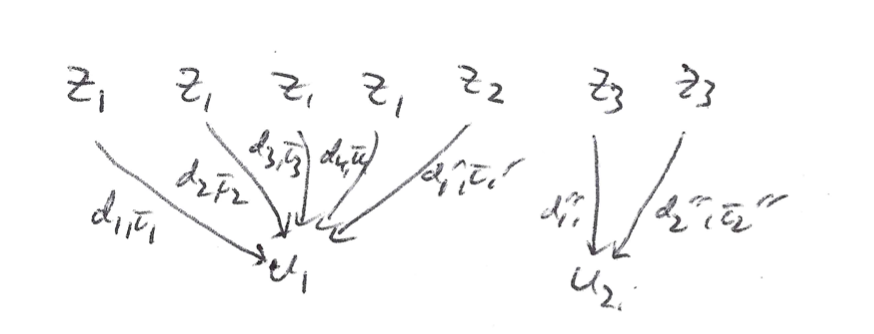 Z₁ Z₁ Z₁ Z₁ Z₂ Z₃ Z₃
d₃,τ̄₃ d₄,τ̄₄
d₂τ̄₂ d₁′,τ̄₁′
d₁,τ̄₁ d₁″, d₂″,τ̄₂″
u₁ u₂.